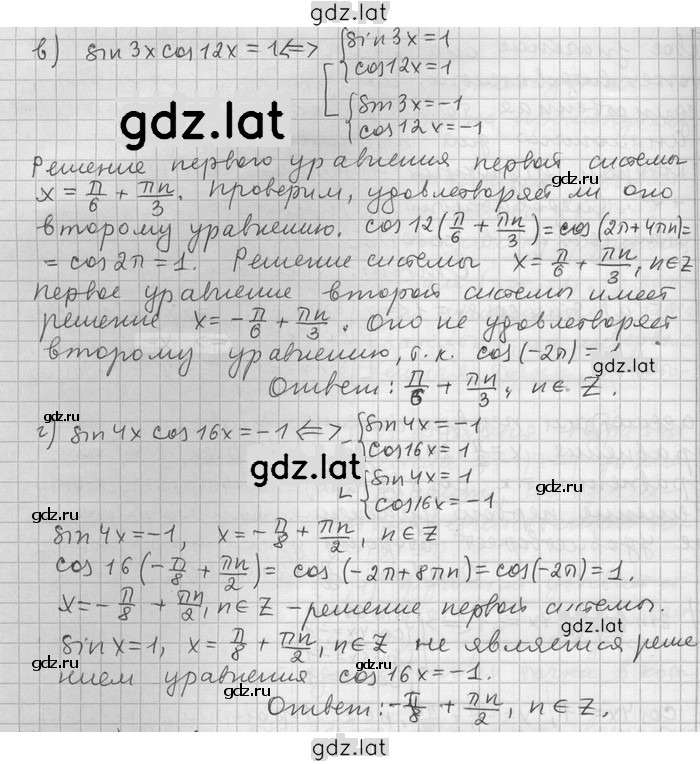 gdz.lat
в) sin 3x cos 12x = 1 <=> { sin 3x = 1
cos 12x = 1
gdz.ru
[ { sin 3x = -1
cos 12x = -1
gdz.lat
Решение первого уравнения первой системы
x = π/6 + πn/3. Проверим, удовлетворяет ли оно
gdz.ru gdz.ru
второму уравнению. cos 12(π/6 + πn/3) = cos (2π + 4πn) =
= cos 2π = 1. Решение системы x = π/6 + πn/3, n∈Z
первое уравнение второй системы имеет
решение x = -π/6 + πn/3. Оно не удовлетворяет
второму уравнению, т.к. cos (-2π) = 1
gdz.lat
Ответ: π/6 + πn/3, n∈Z.
gdz.ru
г) sin 4x cos 16x = -1 <=> { sin 4x = -1
cos 16x = 1
gdz.lat
[ { sin 4x = 1
cos 16x = -1
gdz.ru
sin 4x = -1, x = -π/8 + πn/2, n∈Z
cos 16(-π/8 + πn/2) = cos (-2π + 8πn) = cos (-2π) = 1.
x = -π/8 + πn/2, n∈Z - решение первой системы.
gdz.lat
sin x = 1, x = π/8 + πn/2, n∈Z не является реше
gdz.ru
нием уравнения cos 16x = -1.
gdz.ru
Ответ: -π/8 + πn/2, n∈Z.
gdz.lat